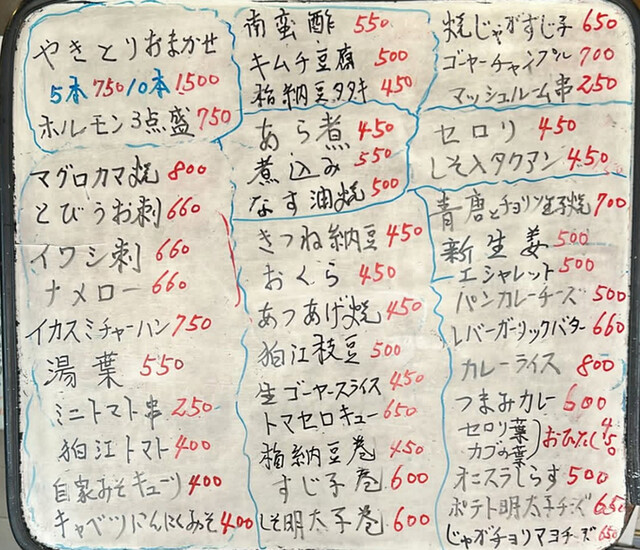 やきとりおまかせ
5本750/10本1500
ホルモン3点盛750
マグロカマ焼 800
とびうお刺 660
イワシ刺 660
ナメロー 660
イカスミチャーハン 750
湯葉 550
ミニトマト串 250
狛江トマト 400
自家みそキューリ 400
キャベツにんにくみそ 400
南蛮酢 550
キムチ豆腐 500
納豆タタキ 450
あら煮 450
煮込み 550
なす油焼 500
きつね納豆 450
おくら 450
あつあげ焼 450
狛江枝豆 500
生ゴーヤースライス 450
トマセロキュー 650
納豆巻 450
すじ子巻 600
しそ明太子巻 600
焼じゃがすじ子 650
ゴーヤーチャンプル 700
マッシュルーム串 250
セロリ 450
しそ入タクアン 450
青唐とチョリソ玉子焼 700
新生姜 500
エシャレット 500
パンカレーチーズ 500
レバーガーリックバター 660
カレーライス 800
つまみカレー 600
セロリ葉
カブの葉 おひたし 450
オニスラしらす 500
ポテト明太子チーズ 650
じゃがチョリマヨチーズ 650